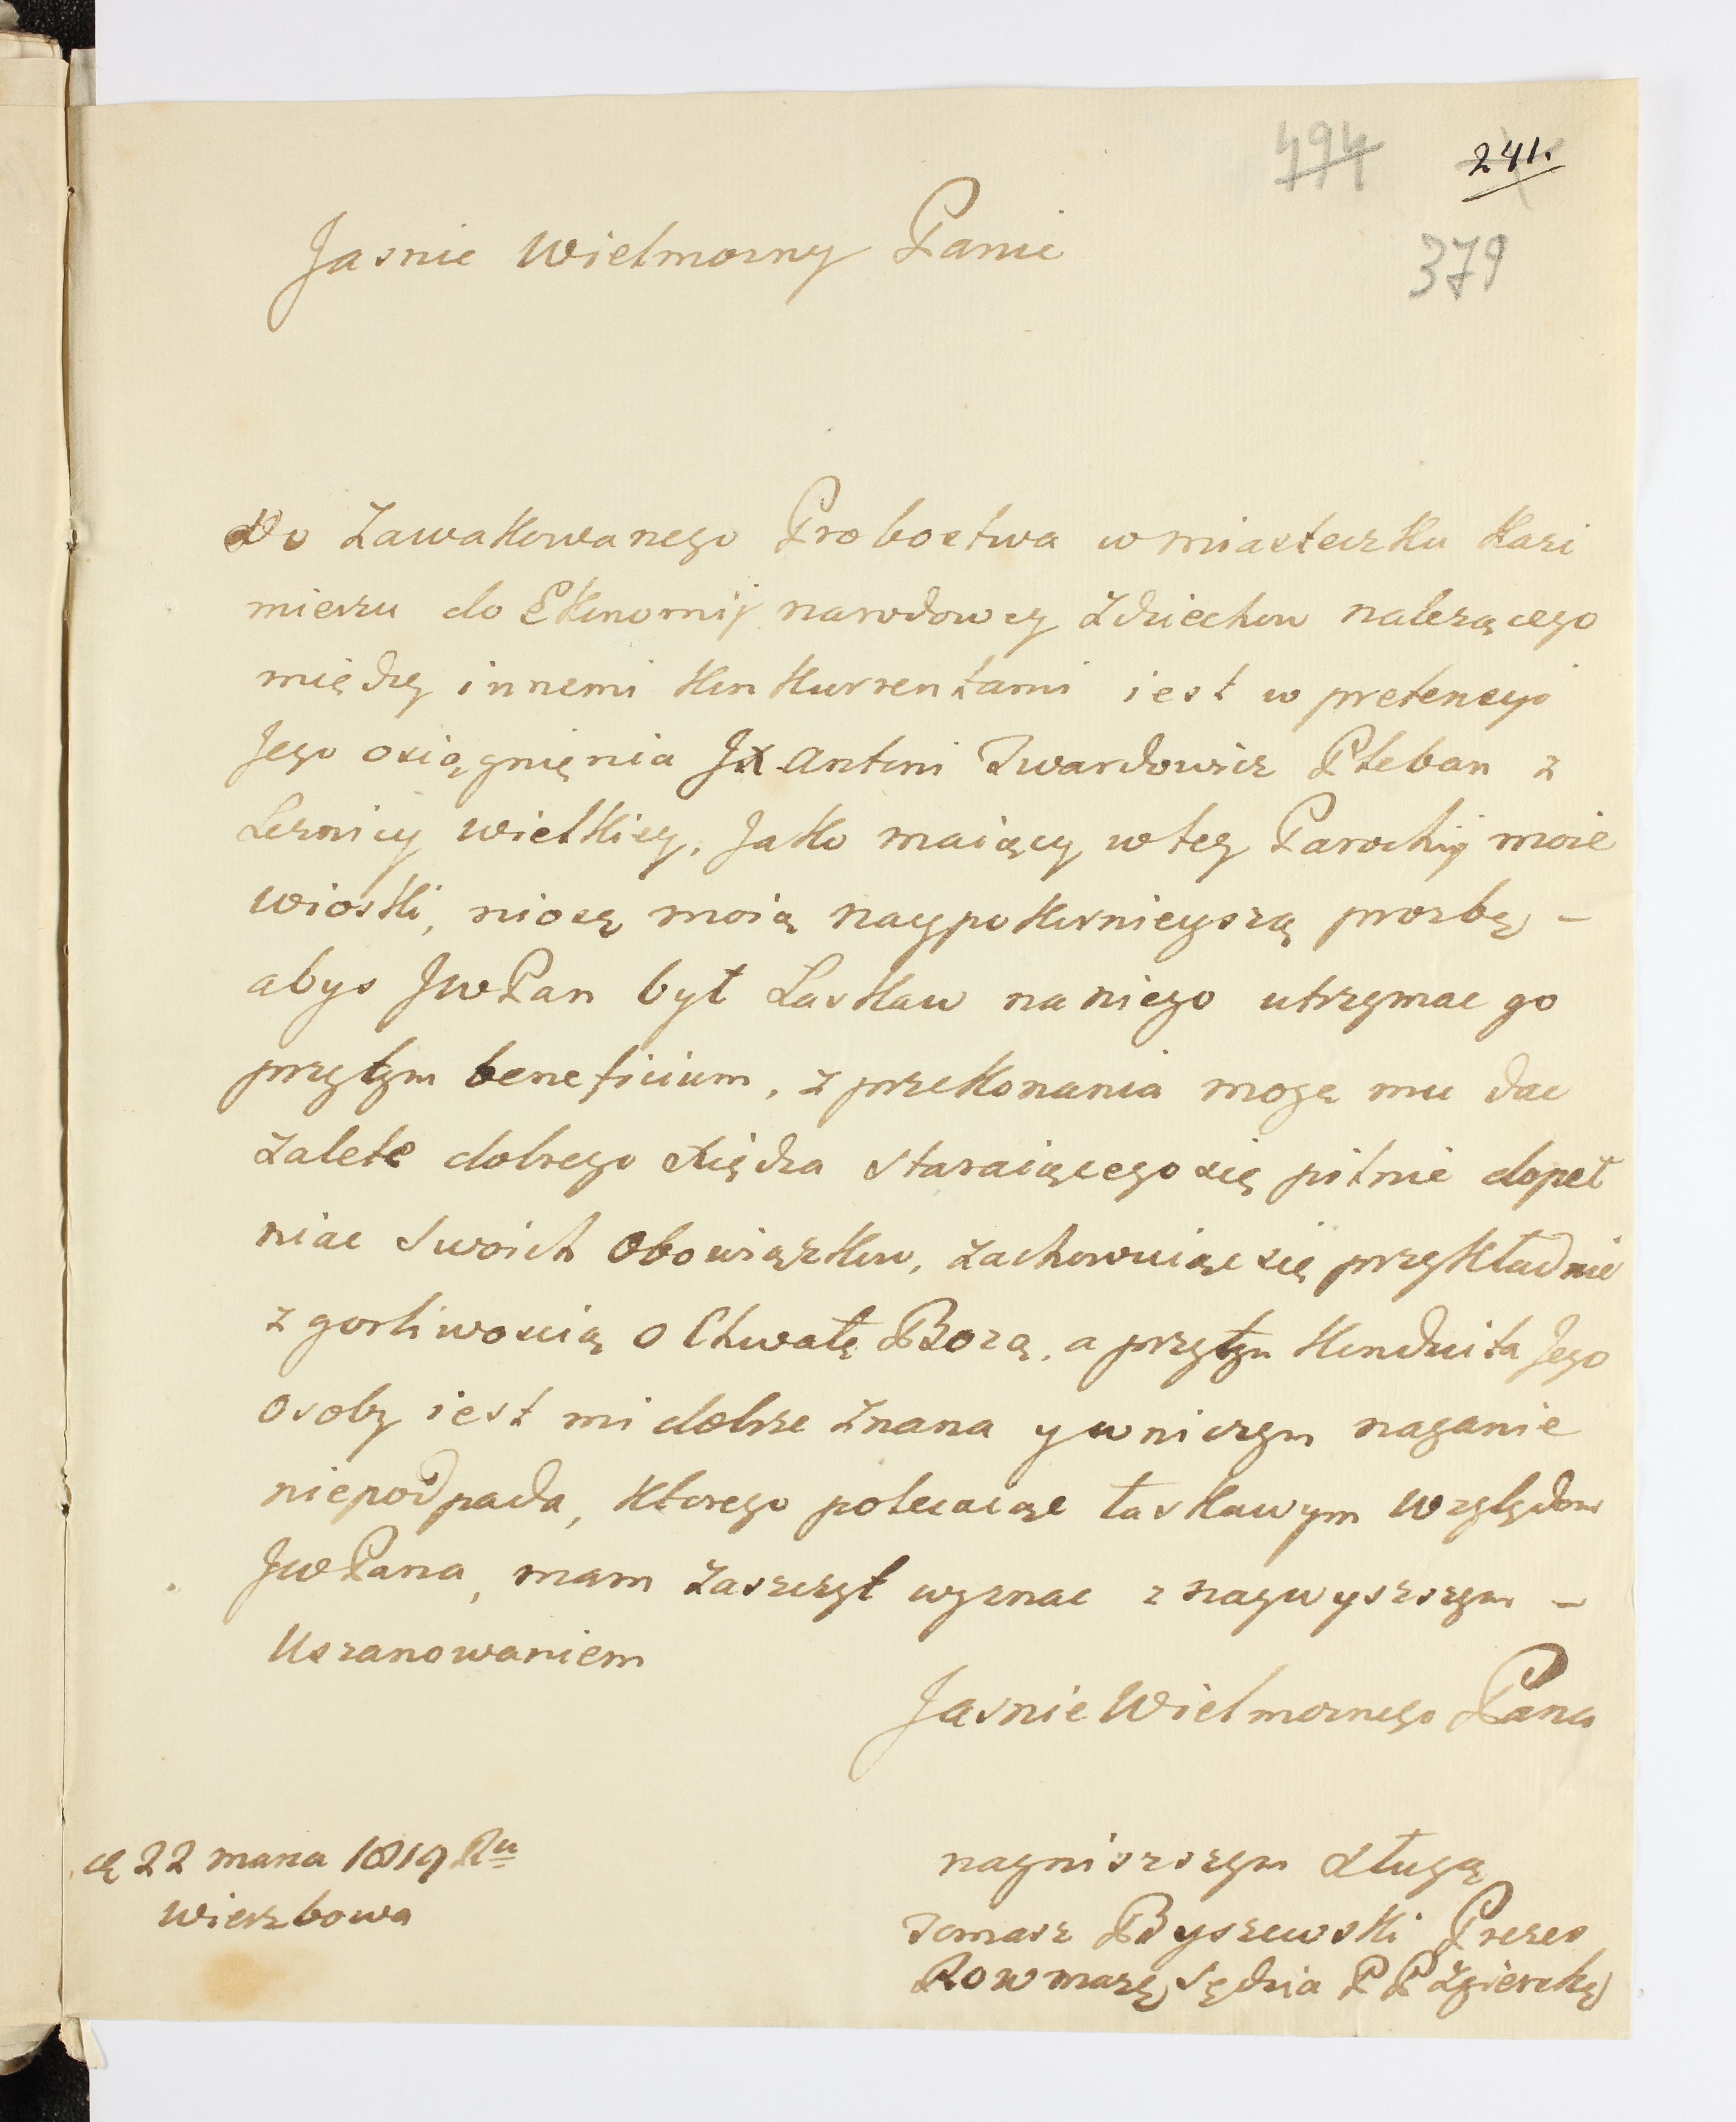 494 241.
379
Jasnie Wielmozny Panie
Do Zawakowanego Probostwa w miasteczku Kazi
mierzu do Ekonomij narodowey Zdziechow nalezącego
między innemi konkurrentami iest w pretensyi
Jego osiągnięnia JX Antoni Twardowicz Pleban z
Leznicy wielkiey, Jako maiący w tey Parochij moie
wioski, niosę moią naypokornieyszą prozbę –
abys JWPan był Laskaw na niego utrzymac go
przytym beneficium, z przekonania mogę mu dac
zalete dobrego Xiędza staraiącego się pilnie dopeł
niac swoich Obowiązkow, zachowuiąc się przykładnie
z gorliwoscią o Chwałę Bozą, a przytym konduita Jego
osoby iest mi dobrze znana y w niczym naganie
niepodpada, ktorego polecaiąc łaskawym względom
JWPana, mam zaszczyt wyznac z naywyszszym –
Uszanowaniem
Jasnie Wielmoznego Pana
22 marca 1819 Ru
Wierzbowa
nayniszszym sługą
Tomasz Byszewski Prezes
Row sędzia P P Zgierski